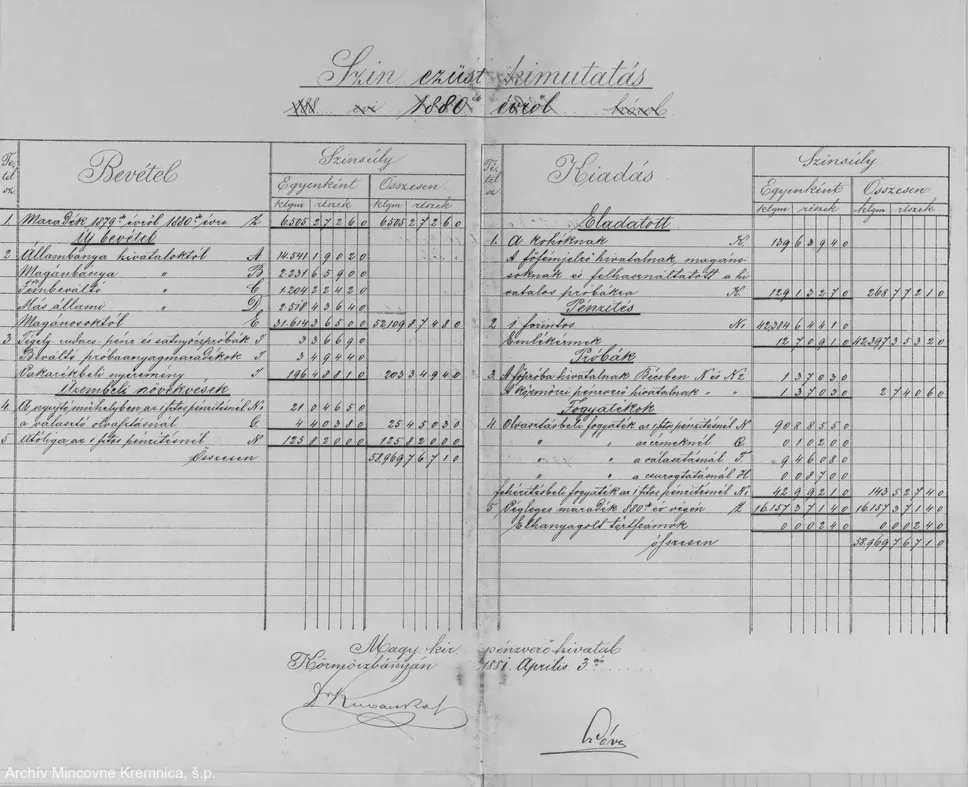 Szin ezüst kimutatás
188 évi 1880ik évről hóról
Té-
tel
sz.
Bevétel
Szinsúly
Egyenként Összesen
klgm részek klgm részek
1. Maradék 1879ik évről 1880ik évre Z 6585 27260 6585 27260
Új bevétel
2 Állambánya hivataloktól A 14.541 19020
Magánbánya " B 2231 65900
Fémbeváltó " C 1204 22420
Más állami " D 2518 43640
Magánosoktól E 31.614 36500 52.109 87480
3 Tégely rudacs pénz és satnyvízpróbák I 3 36690
Beváltó próbaanyagmaradékok I 3 49440
Vakarékbeli nyeremény I 196 48810 203 34940
Üzembeli növekvések
4. A nyujtó műhelyben az 1 frtos pénzitésnél N1 21 04650
a választó olvasztásnál G. 4 40380 25 45030
5 Utóliga az 1 frtos pénzitésnél N 125 82000 125 82000
Összesen 58.969 76710
Té-
tel
sz
Kiadás
Szinsúly
Egyenként Összesen
klgm részek klgm részek
Eladatott
1. A kohóknak K. 139 63940
A főfémjelző hivatalnak, magáno-
soknak és felhasználtatott a hi-
vatalos próbákra K. 129 13270 268 77210
Pénzités
2 1 forintos N1 42384 64410
Emlékérmek 12 70910 42397 35320
Próbák
3. A főpróba hivatalnak Bécsben N1 és N2 1 37030
A körmöczi pénzverő hivatalnak " " 1 37030 2 74060
Fogyatékok
4 Olvasztásbeli fogyaték az 1 frtos pénzitésnél N 90 88550
" " az érmeknél Q. 0 10200
" " a választásnál F. 9 46080
" " a csurogtatásnál H 0 08700
fehéritésbeli fogyaték az 1 frtos pénzitésnél N1 42 99210 143 52740
5 Végleges maradék 880ik év végén Z 16.157 37140 16.157 37140
Elhanyagolt törtszámok 0 00240 0 00240
összesen 58.969 76710
Magy. kir. pénzverő hivatal
Körmöczbányán 1881. Április 3án
Archív Mincovne Kremnica, š.p.